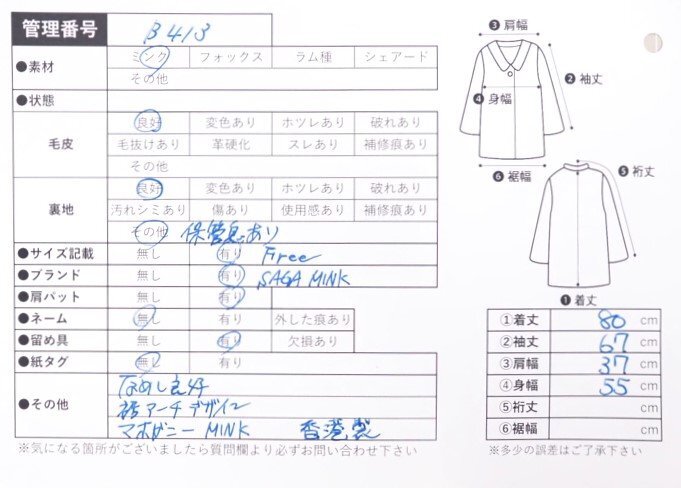 管理番号 B413
●素材 ミンク フォックス ラム種 シェアード
その他
●状態
毛皮 良好 変色あり ホツレあり 破れあり
毛抜けあり 革硬化 スレあり 補修痕あり
その他
裏地 良好 変色あり ホツレあり 破れあり
汚れシミあり 傷あり 使用感あり 補修痕あり
その他 保管臭あり
●サイズ記載 無し 有り Free
●ブランド 無し 有り SAGA MINK
●肩パット 無し 有り
●ネーム 無し 有り 外した痕あり
●留め具 無し 有り 欠損あり
●紙タグ 無し 有り
●その他 なめし良好
裾アーチデザイン
マホガニー MINK 香港製
※気になる箇所がございましたら質問欄より必ずお問い合わせ下さい
❸肩幅
❷袖丈
❹身幅
❻裄丈
❺裾幅
❶着丈
①着丈 80 cm
②袖丈 67 cm
③肩幅 37 cm
④身幅 55 cm
⑤裄丈 cm
⑥裾幅 cm
※多少の誤差はご了承下さい